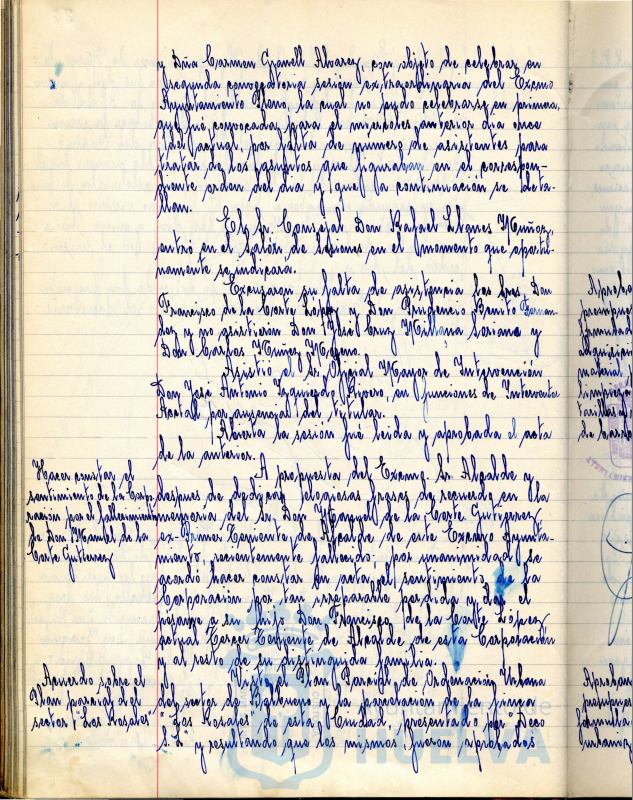 y Dña Carmen Gravell Alvarez, con objeto de celebrar en
segunda convocatoria sesión extraordinaria del Excmo
Ayuntamiento Pleno, la cual no pudo celebrarse en primera,
que fué convocada para el miercoles anterior dia once
del actual, por falta de numero de asistentes para
tratar de los asuntos que figuraban en el correspon-
diente orden del dia y que a continuación se deta-
llan.
El Sr. Concejal Don Rafael Muñoz,
entró en el Salón de Sesiones en el momento que oportu-
namente se indicara.
Excusaron su falta de asistencia los Sres. Don
Francisco de la Corte López y Don Prudencio Benito Fernan-
dez y no asistieron Don José Cruz Soriano y
Don Carlos Muñoz
Asistió el Sr. Oficial Mayor de Intervención
Don José Antonio Izquierdo Rivero, en funciones de Interventor
Acctal. por ausencia del titular.
Abierta la sesión fué leida y aprobada el acta
de la anterior.
Hacer constar el
sentimiento de la Corpo-
ración por el fallecimiento
de Don Manuel de la
Corte Gutierrez
A propuesta del Excmo. Sr. Alcalde y
despues de dedicar elogiosas frases de recuerdo en la
memoria del Sr. Don Manuel de la Corte Gutierrez
ex-Primer Teniente de Alcalde de este Excmo Ayunta-
miento, recientemente fallecido; por unanimidad se
acordó hacer constar en acta el sentimiento de la
Corporación por tan irreparable perdida y dar el
pesame a su hijo Don Francisco de la Corte López
actual Tercer Teniente de Alcalde de esta Corporación
y al resto de su distinguida familia.
Acuerdo sobre el
Plan parcial del
sector "Los Rosales"
Visto el Plan Parcial de Ordenación Urbana
del sector de Balbueno y la parcelacion de la finca
"Los Rosales" de esta Ciudad, presentado por "Beco
S.L" y resultando que los mismos fueron aprobados
Ayuntamiento de
HUELVA